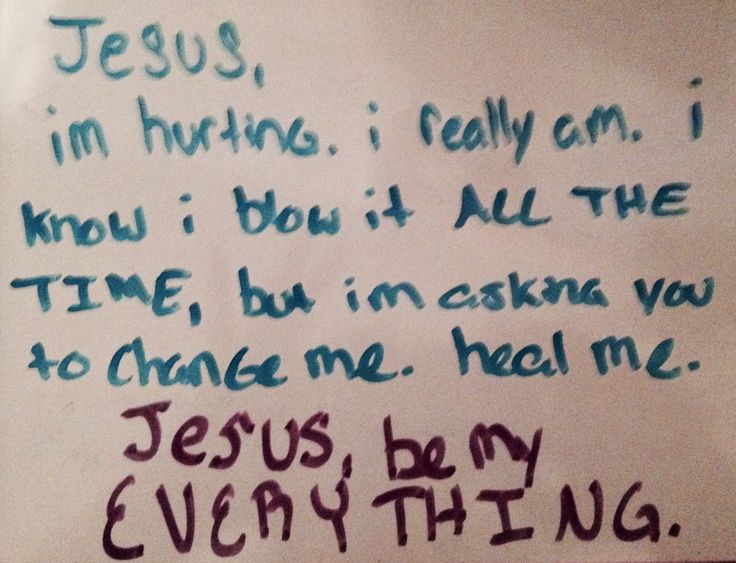 Jesus,
im hurting. i really am. i
know i blow it ALL THE
TIME, but im asking you
to change me. heal me.
Jesus, be my
EVERYTHING.